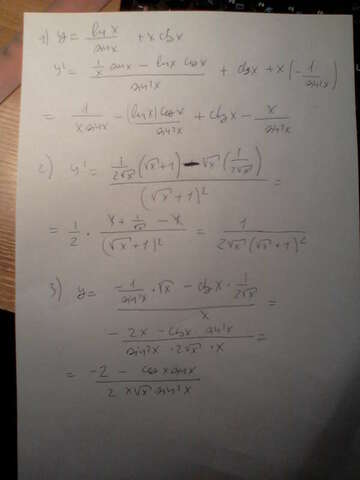 1) y = ln x / sin x + x ctg x
y' = (1/x sin x - ln x cos x) / sin²x + ctg x + x (- 1/sin²x)
= 1 / (x sin x) - (ln x) cos x / sin²x + ctg x - x / sin²x
2) y' = (1/(2√x) (√x + 1) - √x (1/(2√x))) / (√x + 1)² =
= 1/2 · (x + 1/√x - x) / (√x + 1)² = 1 / (2√x (√x + 1)²)
3) y = (- 1/sin²x · √x - ctg x · 1/(2√x)) / x =
- (2x - cos x · sin²x) / (sin²x · 2√x · x) =
= (-2 - cos x sin x) / (2 x √x sin²x)